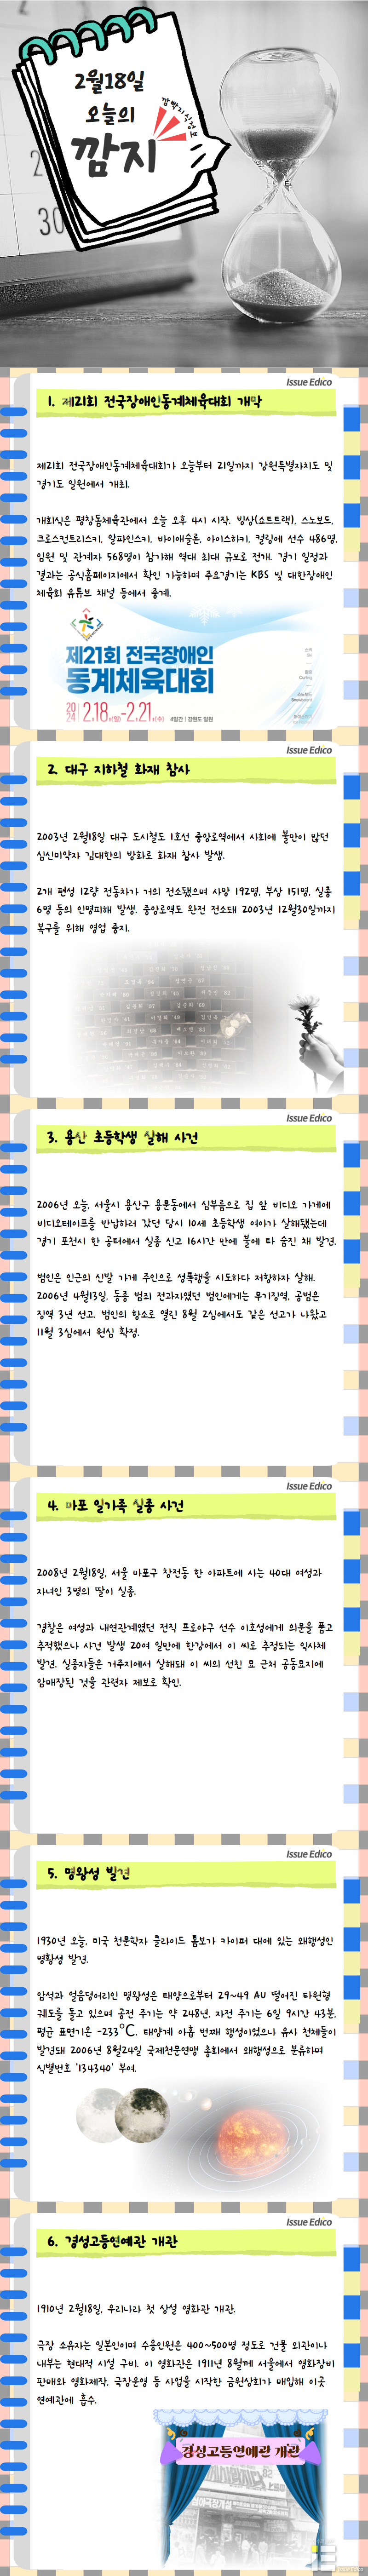 2월18일
오늘의
깜지
깜빡리식정보
30
Issue Edico
1. 제21회 전국장애인동계체육대회 개막
제21회 전국장애인동계체육대회가 오늘부터 21일까지 강원특별자치도 및
경기도 일원에서 개최.
개회식은 평창돔체육관에서 오늘 오후 4시 시작. 빙상(쇼트트랙), 스노보드,
크로스컨트리스키, 알파인스키, 바이애슬론, 아이스하키, 컬링에 선수 486명,
임원 및 관계자 568명이 참가해 역대 최대 규모로 전개. 경기 일정과
결과는 공식홈페이지에서 확인 가능하며 주요경기는 KBS 및 대한장애인
체육회 유튜브 채널 등에서 중계.
제21회 전국장애인
동계체육대회
2024 2.18.(일)-2.21.(수) 4일간 | 강원도 일원
Issue Edico
2. 대구 지하철 화재 참사
2003년 2월18일 대구 도시철도 1호선 중앙로역에서 사회에 불만이 많던
심신미약자 김대한의 방화로 화재 참사 발생.
2개 편성 12량 전동차가 거의 전소됐으며 사망 192명, 부상 151명, 실종
6명 등의 인명피해 발생. 중앙로역도 완전 전소돼 2003년 12월30일까지
복구를 위해 영업 중지.
Issue Edico
3. 용산 초등학생 살해 사건
2006년 오늘, 서울시 용산구 용문동에서 심부름으로 집 앞 비디오 가게에
비디오테이프를 반납하러 갔던 당시 10세 초등학생 여아가 살해됐는데
경기 포천시 한 공터에서 실종 신고 16시간 만에 불에 타 숨진 채 발견.
범인은 인근의 신발 가게 주인으로 성폭행을 시도하다 저항하자 살해.
2006년 4월13일, 동종 범죄 전과자였던 범인에게는 무기징역, 공범은
징역 3년 선고. 범인의 항소로 열린 8월 2심에서도 같은 선고가 나왔고
11월 3심에서 원심 확정.
Issue Edico
4. 마포 일가족 실종 사건
2008년 2월18일, 서울 마포구 창전동 한 아파트에 사는 40대 여성과
자녀인 3명의 딸이 실종.
경찰은 여성과 내연관계였던 전직 프로야구 선수 이호성에게 의문을 품고
추적했으나 사건 발생 20여 일만에 한강에서 이 씨로 추정되는 익사체
발견. 실종자들은 거주지에서 살해돼 이 씨의 선친 묘 근처 공동묘지에
암매장된 것을 관련자 제보로 확인.
Issue Edico
5. 명왕성 발견
1930년 오늘, 미국 천문학자 클라이드 톰보가 카이퍼 대에 있는 왜행성인
명황성 발견.
암석과 얼음덩어리인 명왕성은 태양으로부터 29~49 AU 떨어진 타원형
궤도를 돌고 있으며 공전 주기는 약 248년, 자전 주기는 6일 9시간 43분,
평균 표면기온 -233℃. 태양계 아홉 번째 행성이었으나 유사 천체들이
발견돼 2006년 8월24일 국제천문연맹 총회에서 왜행성으로 분류하며
식별번호 '134340' 부여.
Issue Edico
6. 경성고등연예관 개관
1910년 2월18일, 우리나라 첫 상설 영화관 개관.
극장 소유자는 일본인이며 수용인원은 400~500명 정도로 건물 외관이나
내부는 현대적 시설 구비. 이 영화관은 1911년 8월께 서울에서 영화장비
판매와 영화제작, 극장운영 등 사업을 시작한 금원상회가 매입해 이곳
연예관에 흡수.
경성고등연예관 개관